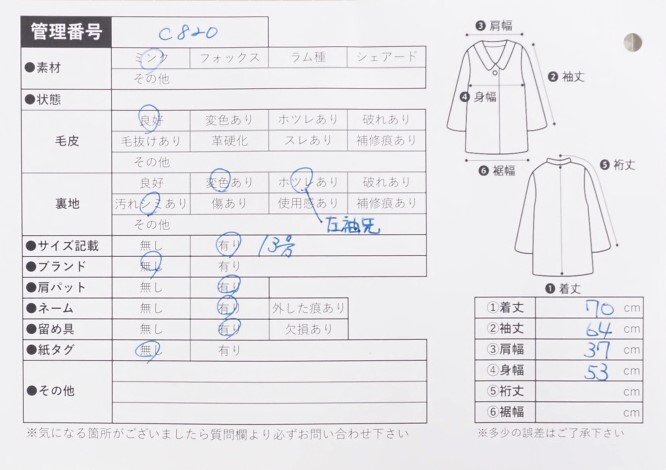 管理番号 C820
●素材 ミンク フォックス ラム種 シェアード
その他
●状態
毛皮 良好 変色あり ホツレあり 破れあり
毛抜けあり 革硬化 スレあり 補修痕あり
その他
裏地 良好 変色あり ホツレあり 破れあり
汚れシミあり 傷あり 使用感あり 補修痕あり
その他 左袖先
●サイズ記載 無し 有り 13号
●ブランド 無し 有り
●肩パット 無し 有り
●ネーム 無し 有り 外した痕あり
●留め具 無し 有り 欠損あり
●紙タグ 無し 有り
●その他
※気になる箇所がございましたら質問欄より必ずお問い合わせ下さい
❸肩幅
❷袖丈
❹身幅
❻裾幅
❺裄丈
❶着丈
①着丈 70 cm
②袖丈 64 cm
③肩幅 37 cm
④身幅 53 cm
⑤裄丈 cm
⑥裾幅 cm
※多少の誤差はご了承下さい